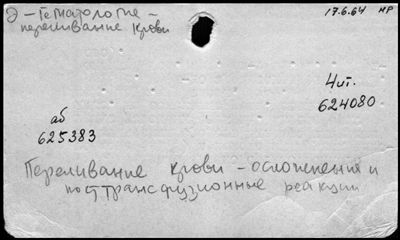 Э - Гематология -
переливание крови
17.6.64 НР
Чит.
624080
аб
625383
Переливание крови - осложнения и
посттрансфузионные реакции